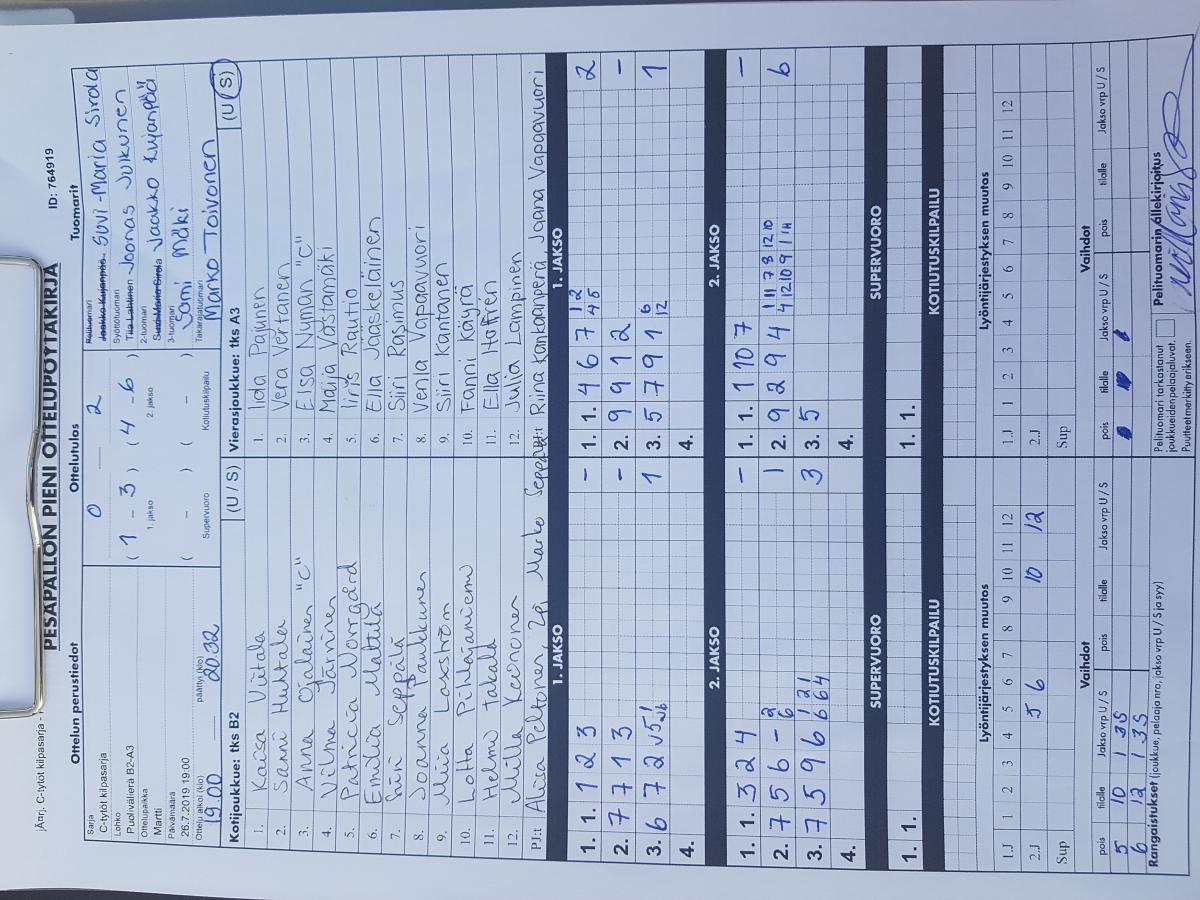 jÄrj. C-tytöt kilpasarja -
PESÄPALLON PIENI OTTELUPÖYTÄKIRJA
ID: 764919
Ottelun perustiedot
Ottelutulos
Tuomarit
Sarja
C-tytöt kilpasarja
Lohko
Puolivälierä B2-A3
Ottelupaikka
Martti
Päivämäärä
26.7.2019 19:00
Ottelu alkoi (klo)
19.00
päättyi (klo)
20.32
0 2
( 1 - 3 ) ( 4 - 6 )
1. jakso 2. jakso
( - ) ( - )
Supervuoro Kotiutuskilpailu
Pelituomari
Jaakko Kujanpää Suvi-Maria Sirola
Syöttötuomari
Tiia Lahtinen Joonas Julkunen
2-tuomari
Suvi-Maria Sirola Jaakko Kujanpää
3-tuomari
Sami Mäki
Takarajatuomari
Marko Toivonen
Kotijoukkue: tks B2 (U / S)
1. Kaisa Viitala
2. Sanni Huhtala
3. Anna Ojalainen "C"
4. Vilma Järvinen
5. Patricia Norrgård
6. Emilia Mattila
7. Siiri Seppälä
8. Joanna Paukkunen
9. Miia Laxström
10. Lotta Pihlajaniemi
11. Helmi Takala
12. Milla Keinonen
PJ:t Aliisa Peltonen, Marko Seppälä
Vierasjoukkue: tks A3 (U / S)
1. Iida Pajunen
2. Vera Vertanen
3. Elsa Nyman "C"
4. Maija Västämäki
5. Iiris Rautio
6. Ella Jääskeläinen
7. Siiri Rasimus
8. Venla Vapaavuori
9. Siiri Kantanen
10. Fanni Käyrä
11. Ella Hoffren
12. Julia Lampinen
PJ:t Riina Kankaanperä Jaana Vapaavuori
1. JAKSO 1. JAKSO
1. 1. 1 2 3 -
2. 7 7 1 3 -
3. 6 7 2 1
4.
1. 1. 4 6 7 12 45 2
2. 9 9 1 2 -
3. 5 7 9 1 6 12 1
4.
2. JAKSO 2. JAKSO
1. 1. 3 2 4 -
2. 7 5 6 - 2 6 1
3. 7 5 9 6 1 2 1 6 6 4 3
4.
1. 1. 1 10 7 -
2. 9 2 9 4 6
3. 5
4.
SUPERVUORO SUPERVUORO
1. 1.
1. 1.
KOTIUTUSKILPAILU KOTIUTUSKILPAILU
Lyöntijärjestyksen muutos
1.J 1 2 3 4 5 6 7 8 9 10 11 12
2.J 5 6 10 12
Sup
Lyöntijärjestyksen muutos
1.J 1 2 3 4 5 6 7 8 9 10 11 12
2.J
Sup
Vaihdot
pois tilalle Jakso vrp U / S pois tilalle Jakso vrp U / S
5 10 1 3S
6 12 1 3S
Vaihdot
pois tilalle Jakso vrp U / S pois tilalle Jakso vrp U / S
Rangaistukset (joukkue, pelaaja nro, jakso vrp U / S ja syy)
Pelituomari tarkastanut
joukkueiden pelaajaluvat.
Puutteet merkitty erikseen.
Pelituomarin allekirjoitus